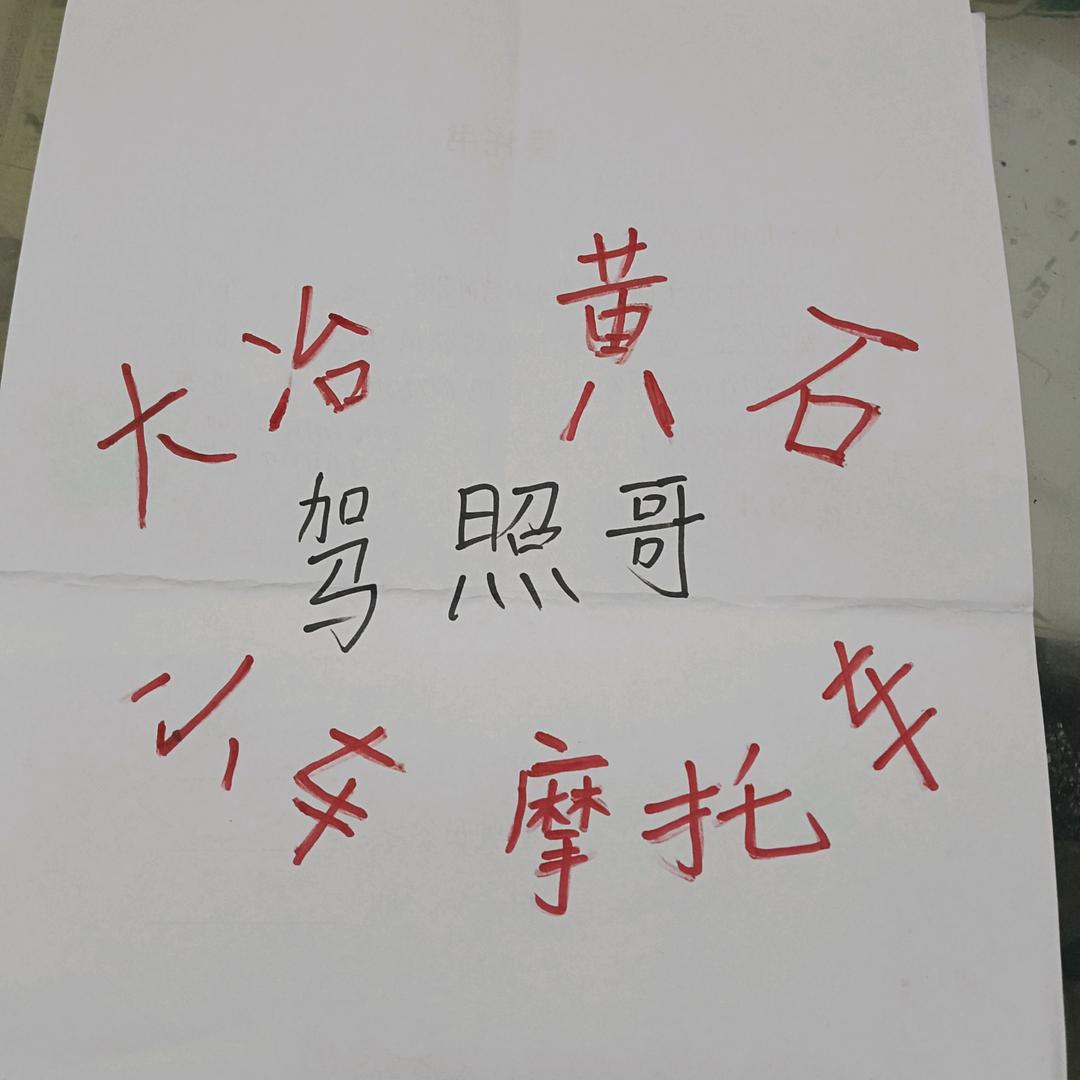 大冶 黄石
驾照哥
小车 摩托车